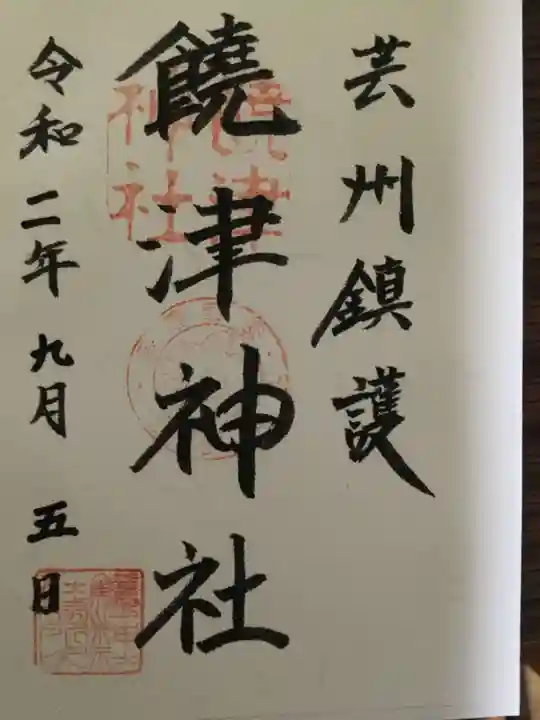 芸州鎮護
饒津神社
令和二年九月五日
饒津
神社